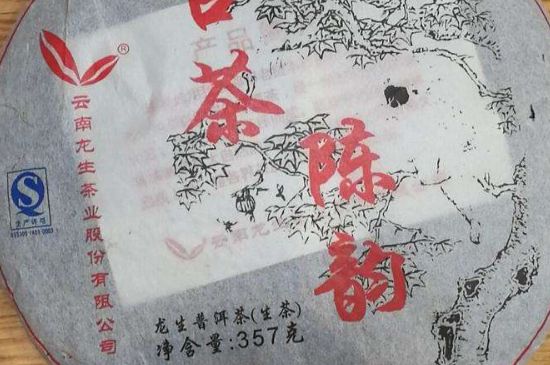 茶
陈韵
®
云南龙生茶业股份有限公司
产品
生产许可
云南龙生
龙生普洱茶(生茶)
净含量:357克